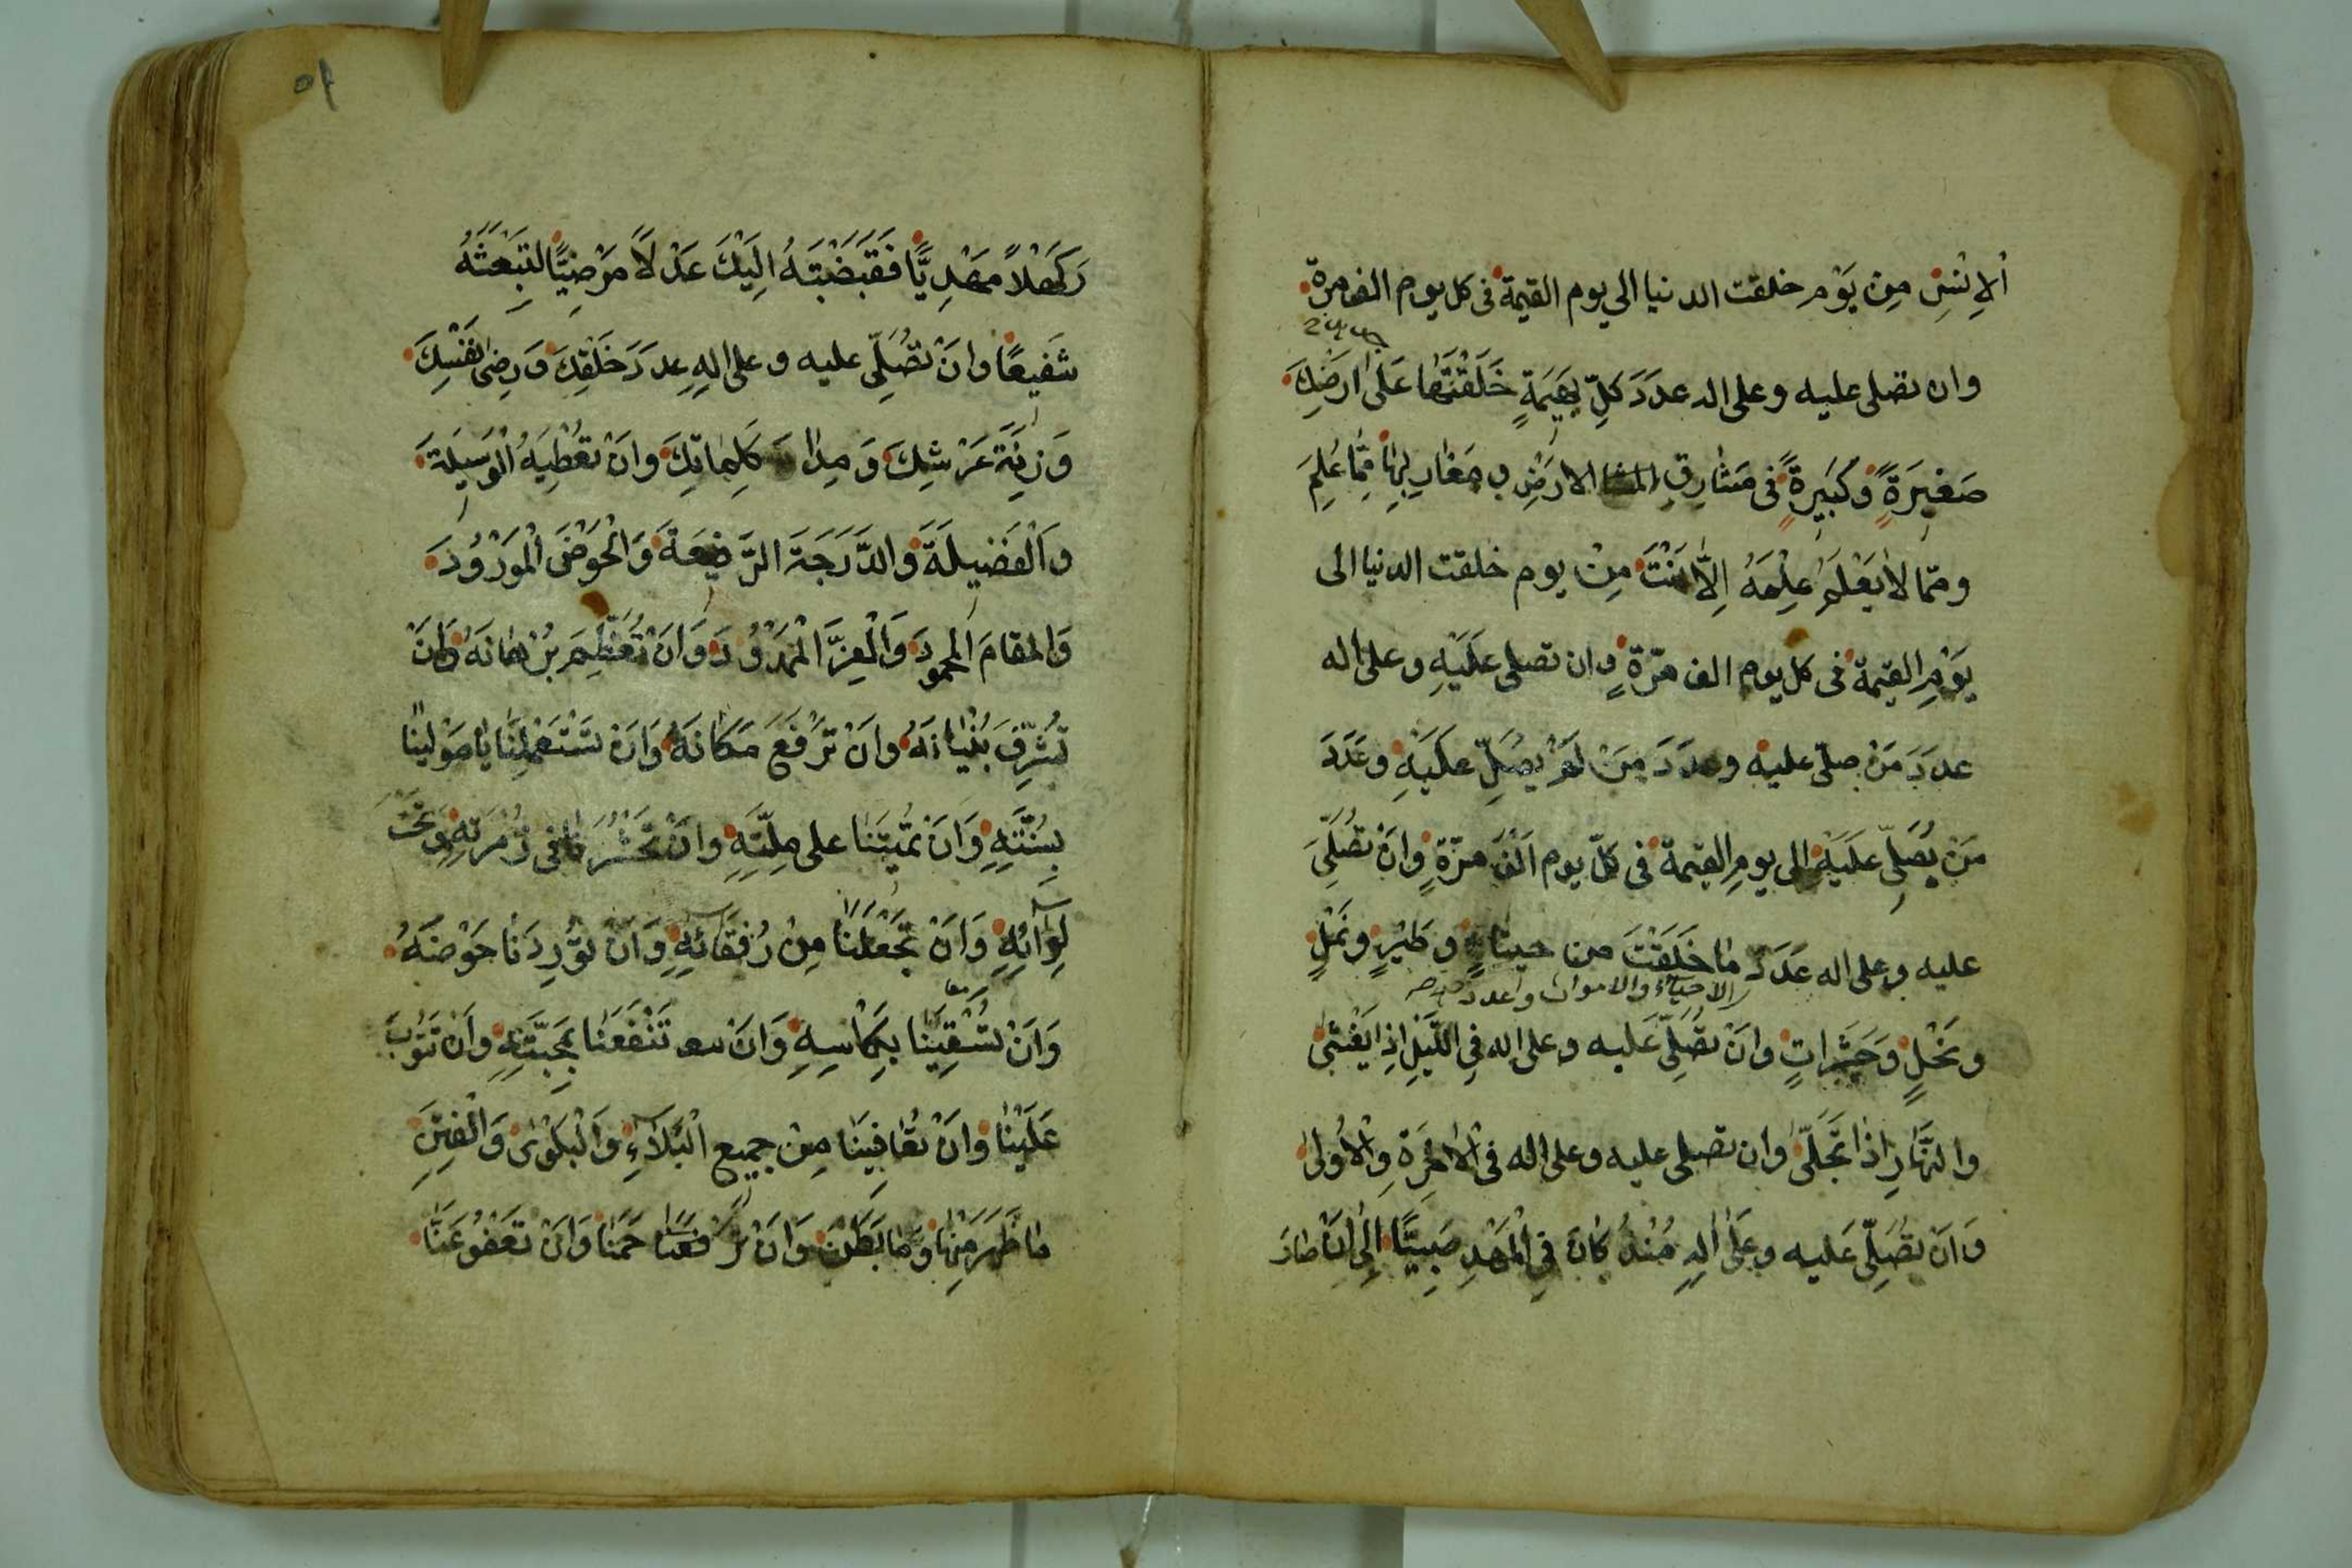 اْلاِنْسِ مِنْ يَوْمِ خلقت الدنيا الى يوم القيمة فى كل يوم الف مرة
وان تصلى عليه وعلى اله عدَدَ كلِّ بَهِيمَةٍ خَلَقْتَهٰا عَلىٰ ارضِكَ
صَغيرَةً وَكَبيرةً فى مَشٰارِقِ الارَضِ و مَغٰارِبِهٰا مِمّا عُلِمَ
وممّا لاٰ يَعْلَمُ عِلْمَهُ اِلاّٰ اَنْتَ مِنْ يوم خلقت الدنيا الى
يَوْمِ القيمة فى كل يوم الف مَرّةٍ وان تصلى عَلَيْهِ وعلى اله
عدَدَ مَنْ صلّى عليه وعدَدَ مَنْ لَمْ يُصَلِّ عَلَيْهِ وعَدَدَ
مَنْ يُصَلِّى عَلَيْهِ الى يومِ القيمة فى كلّ يوم اَلْفَ مَرّةٍ وانْ تُصَلِّىَ
عليه وعلى اله عَدَدَ مٰا خَلَقْتَ من حيتٰانٍ وطَيْرٍ ونَمْلٍ
الاحيآء والاموات وعدد
ونَحْلٍ وَحَشَراتٍ وانْ تُصَلِّىَ عَليه وعلى اله فِى اللَّيْلِ اِذا يَغْشىٰ
والنَّهٰارِ اِذٰا تَجَلّىٰ وان تصلى عليه وعلى اله فى الاٰخِرَةِ وَالْاُولىٰ
وَانْ تُصَلِّىَ عَليه وعَلىٰ الِهِ مُنْذُ كٰانَ فِى الْمَهْدِ صَبِيًّا اِلىٰ اَنْ صٰارَ
كَهْلاً مَهْدِيًّا فَقَبَضْتَهُ اِلَيْكَ عَدْلاً مَرْضِيًّا لتَبْعَثَهُ
شَفيعًا وانْ تُصَلِّى عليه وعلى الِهِ عددَ خَلْقِكَ وَرِضىٰ نَفْسِكَ
وَزِنَةَ عَرْشِكَ وَمِدٰادَ كَلِمٰاتِكَ وانْ تُعْطِيَهُ الْوَسيلَةَ
وَالْفَضيلَةَ والدَّرَجَةَ الرَّفيعَةَ وَالْحَوْضَ الْمَوْرُودَ
وَالمقامَ المحمودَ وَالْعِزَّ الْمَمْدُودَ وَانْ تُعَظِّمَ بُرْهٰانَهُ وَانْ
تُشَرِّفَ بُنْيٰانَهُ وانْ تَرْفَعَ مَكٰانَهُ وَانْ تَسْتَعْمِلَنٰا يٰا مَوْلينٰا
بِسُنَّتِهِ وَانْ تُمَيتَنٰا على مِلّتِهِ وانْ تَحْشُرَنٰا فى زُمْرَتِهِ وَتَحْتَ
لِوٰآئِهِ وَانْ تَجْعَلَنٰا مِنْ رُفَقٰآئِهِ وَانْ تُورِدَنٰا حَوْضَهُ
وَانْ تُسْقِيَنٰا بِكَاْسِهِ وَانْ تَنْفَعَنٰا بِمَحَبَّتِهِ وانْ تَتُوبَ
عَلَيْنٰا وانْ تُعٰافِيَنٰا مِنْ جميع الْبَلاٰءِ وَالْبَلْوىٰ وَالْفِتَنِ
مٰا ظَهَرَ مِنْهٰا وَمٰا بَطَنَ وَانْ تَرْحَمَنٰا وَانْ تَعْفُوَ عَنّٰا